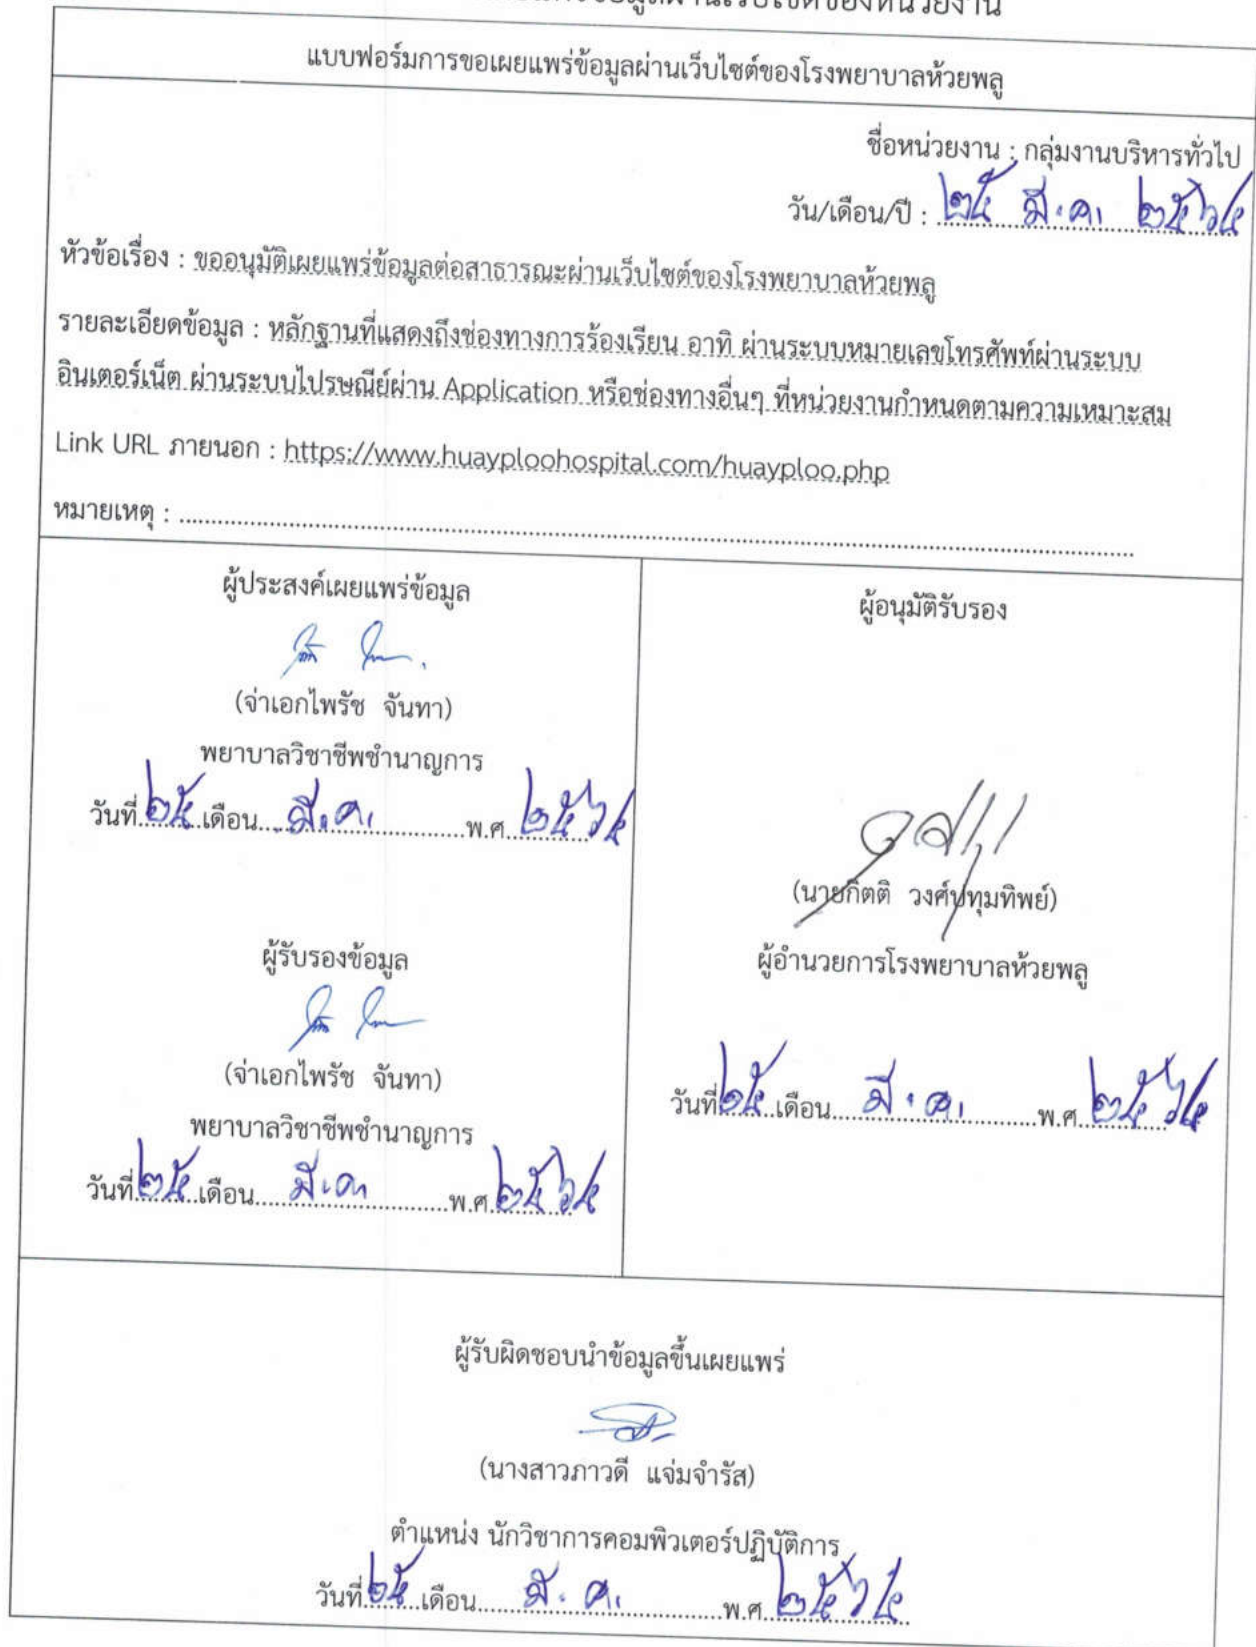 ข้อมูลผ่านเว็บไซต์ของหน่วยงาน
แบบฟอร์มการขอเผยแพร่ข้อมูลผ่านเว็บไซต์ของโรงพยาบาลห้วยพลู
ชื่อหน่วยงาน : กลุ่มงานบริหารทั่วไป
วัน/เดือน/ปี : ๒๕ มี.ค. ๒๕๖๔
หัวข้อเรื่อง : ขออนุมัติเผยแพร่ข้อมูลต่อสาธารณะผ่านเว็บไซต์ของโรงพยาบาลห้วยพลู
รายละเอียดข้อมูล : หลักฐานที่แสดงถึงช่องทางการร้องเรียน อาทิ ผ่านระบบหมายเลขโทรศัพท์ผ่านระบบ
อินเตอร์เน็ต ผ่านระบบไปรษณีย์ผ่าน Application หรือช่องทางอื่นๆ ที่หน่วยงานกำหนดตามความเหมาะสม
Link URL ภายนอก : https://www.huayploohospital.com/huayploo.php
หมายเหตุ : ........................................
ผู้ประสงค์เผยแพร่ข้อมูล
(จ่าเอกไพรัช จันทา)
พยาบาลวิชาชีพชำนาญการ
วันที่ ๒๕ เดือน มี.ค. พ.ศ. ๒๕๖๔
ผู้รับรองข้อมูล
(จ่าเอกไพรัช จันทา)
พยาบาลวิชาชีพชำนาญการ
วันที่ ๒๕ เดือน มี.ค. พ.ศ. ๒๕๖๔
ผู้อนุมัติรับรอง
(นายกิตติ วงศ์ปทุมทิพย์)
ผู้อำนวยการโรงพยาบาลห้วยพลู
วันที่ ๒๕ เดือน มี.ค. พ.ศ. ๒๕๖๔
ผู้รับผิดชอบนำข้อมูลขึ้นเผยแพร่
(นางสาวภาวดี แจ่มจำรัส)
ตำแหน่ง นักวิชาการคอมพิวเตอร์ปฏิบัติการ
วันที่ ๒๕ เดือน มี.ค. พ.ศ. ๒๕๖๔